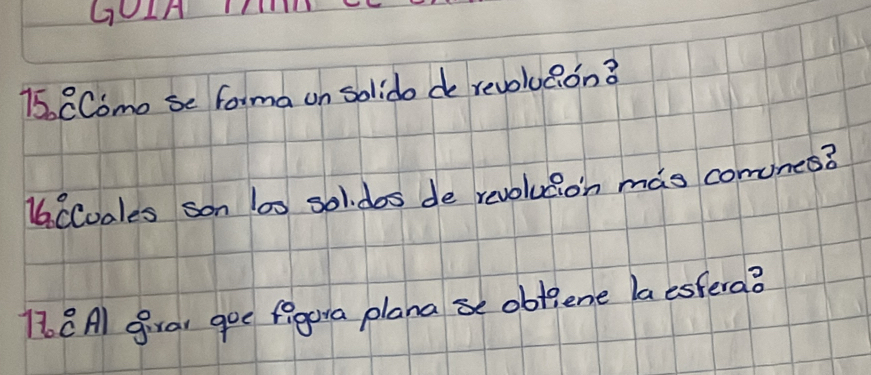 GUIA
15. ¿Cómo se forma un solido de revolución?
16. ¿Cuales son los solidos de revolución más comunes?
17. ¿Al girar que figura plana se obtiene la esfera?